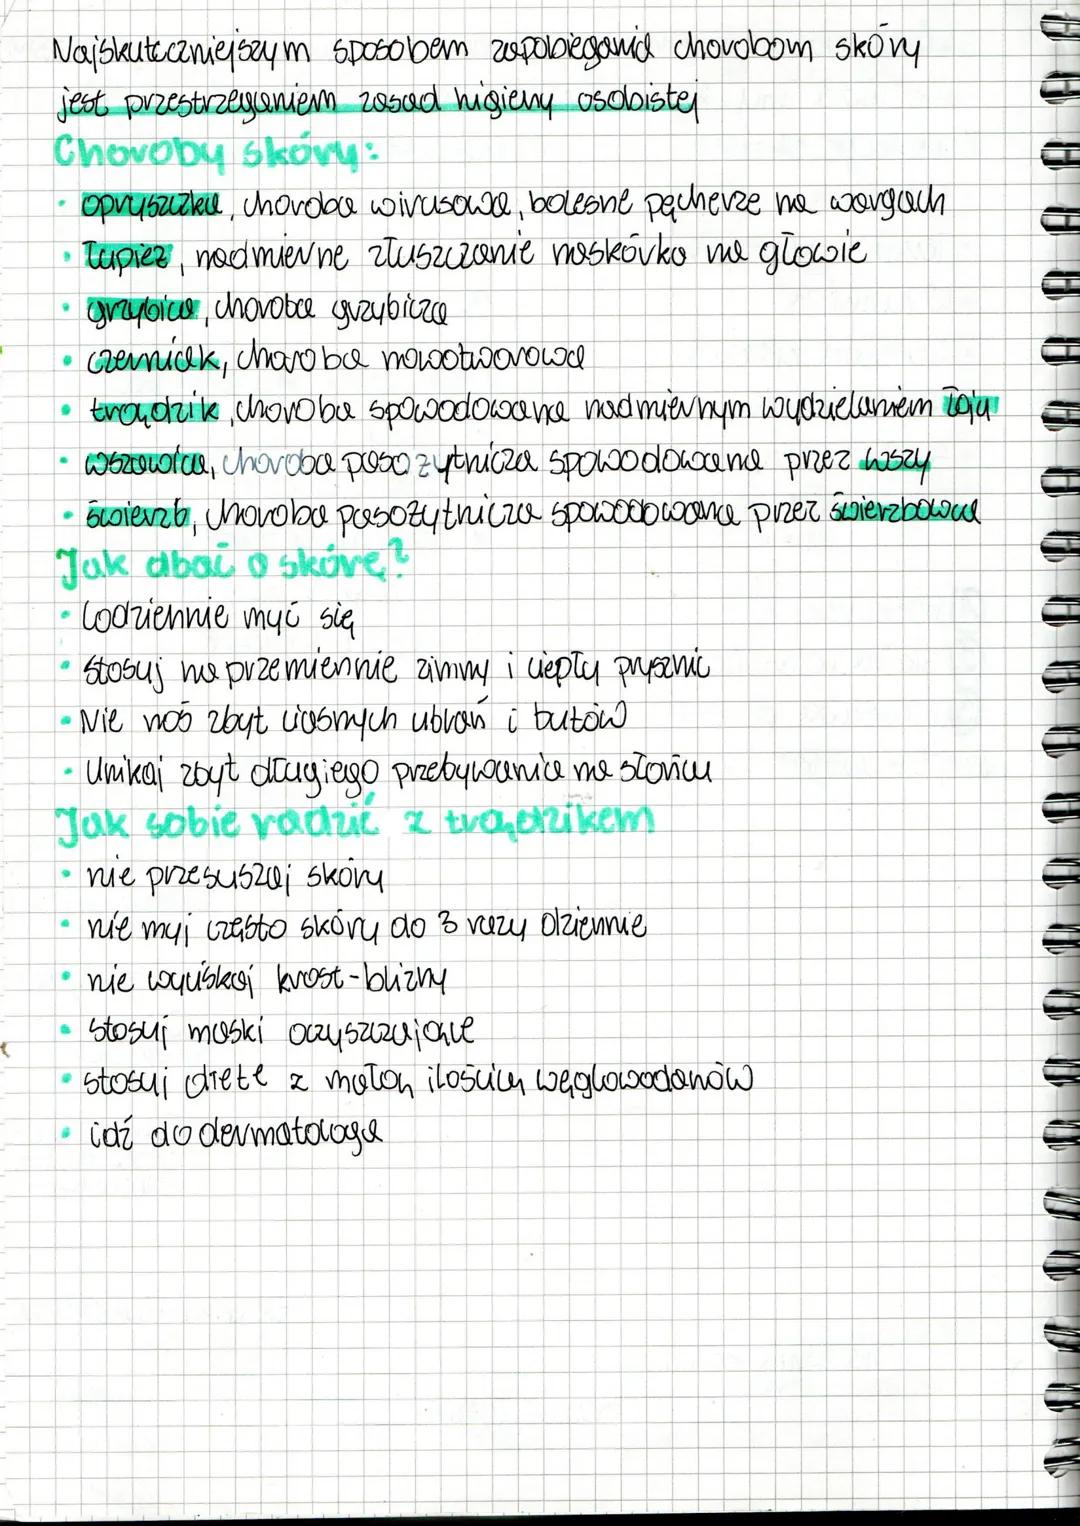 Najskuteczniejszym sposobem zapobiegania chorobom skóry
jest przestrzeganiem zasad higieny osobistej
Choroby skóry:
• opryszczka, choroba wirusowa, bolesne pęcherze na wargach
• Łupież, nadmierne złuszczanie naskórka na głowie
• grzybica, choroba grzybicza
• czerniak, choroba nowotworowa
• trądzik, choroba spowodowana nadmiernym wydzielaniem łoju
• wszawica, choroba pasożytnicza spowodowana przez wszy
• świerzb, choroba pasożytnicza spowodowana przez świerzbowca
Jak dbać o skórę?
• Codziennie myć się
• Stosuj na przemiennie zimny i ciepły prysznic
• Nie noś zbyt ciasnych ubrań i butów
• Unikaj zbyt długiego przebywania na słońcu
Jak sobie radzić z trądzikem
• nie przesuszaj skóry
• nie myj często skóry do 3 razy dziennie
• nie wyciskaj krost - blizny
• stosuj maski oczyszczające
• stosuj dietę z małą ilością węglowodanów
• idź do dermatologa